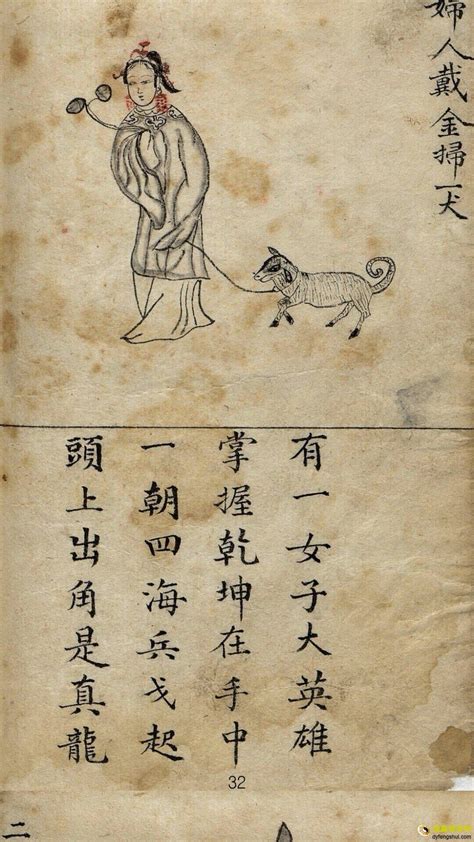 婦人戴金掃一犬
有一女子大英雄
掌握乾坤在手中
一朝四海兵戈起
頭上出角是真龍
32
二
dyfengshui.com